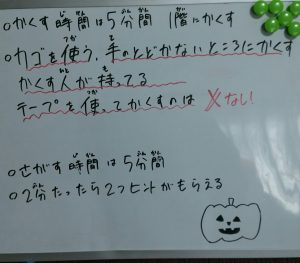 ○かくす時間は5分間 1階にかくす
○カゴを使う、手のとどかないところにかくす
かくす人が持ってる
テープを使ってかくすのは ✕ない
○さがす時間は5分間
○2分たったら2つヒントがもらえる